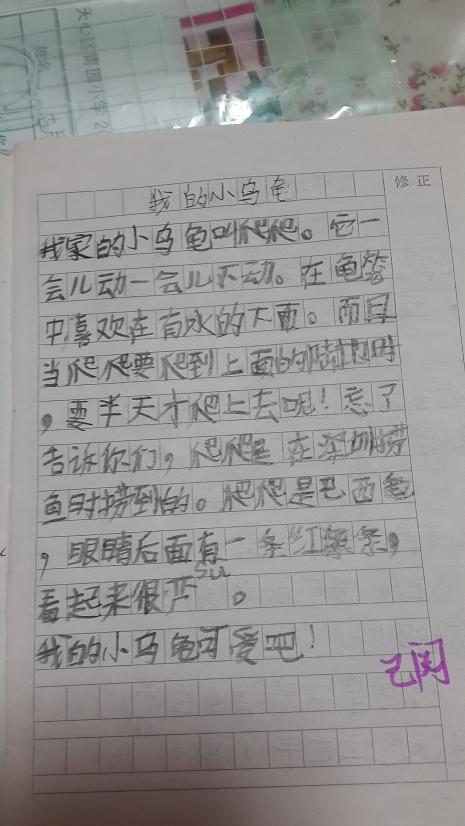 天心区青园小学2
修正
我的小乌龟
我家的小乌龟叫爬爬。它一
会儿动一会儿不动。在龟
中喜欢在有水的下面。而且
当爬爬要爬到上面的陆地时
，要半天才爬上去呢！忘了
告诉你们，爬爬是在深圳捞
鱼时捞到的。爬爬是巴西龟
，眼睛后面有一条红条，
看起来很严su。
我的小乌龟可爱吧！
已阅